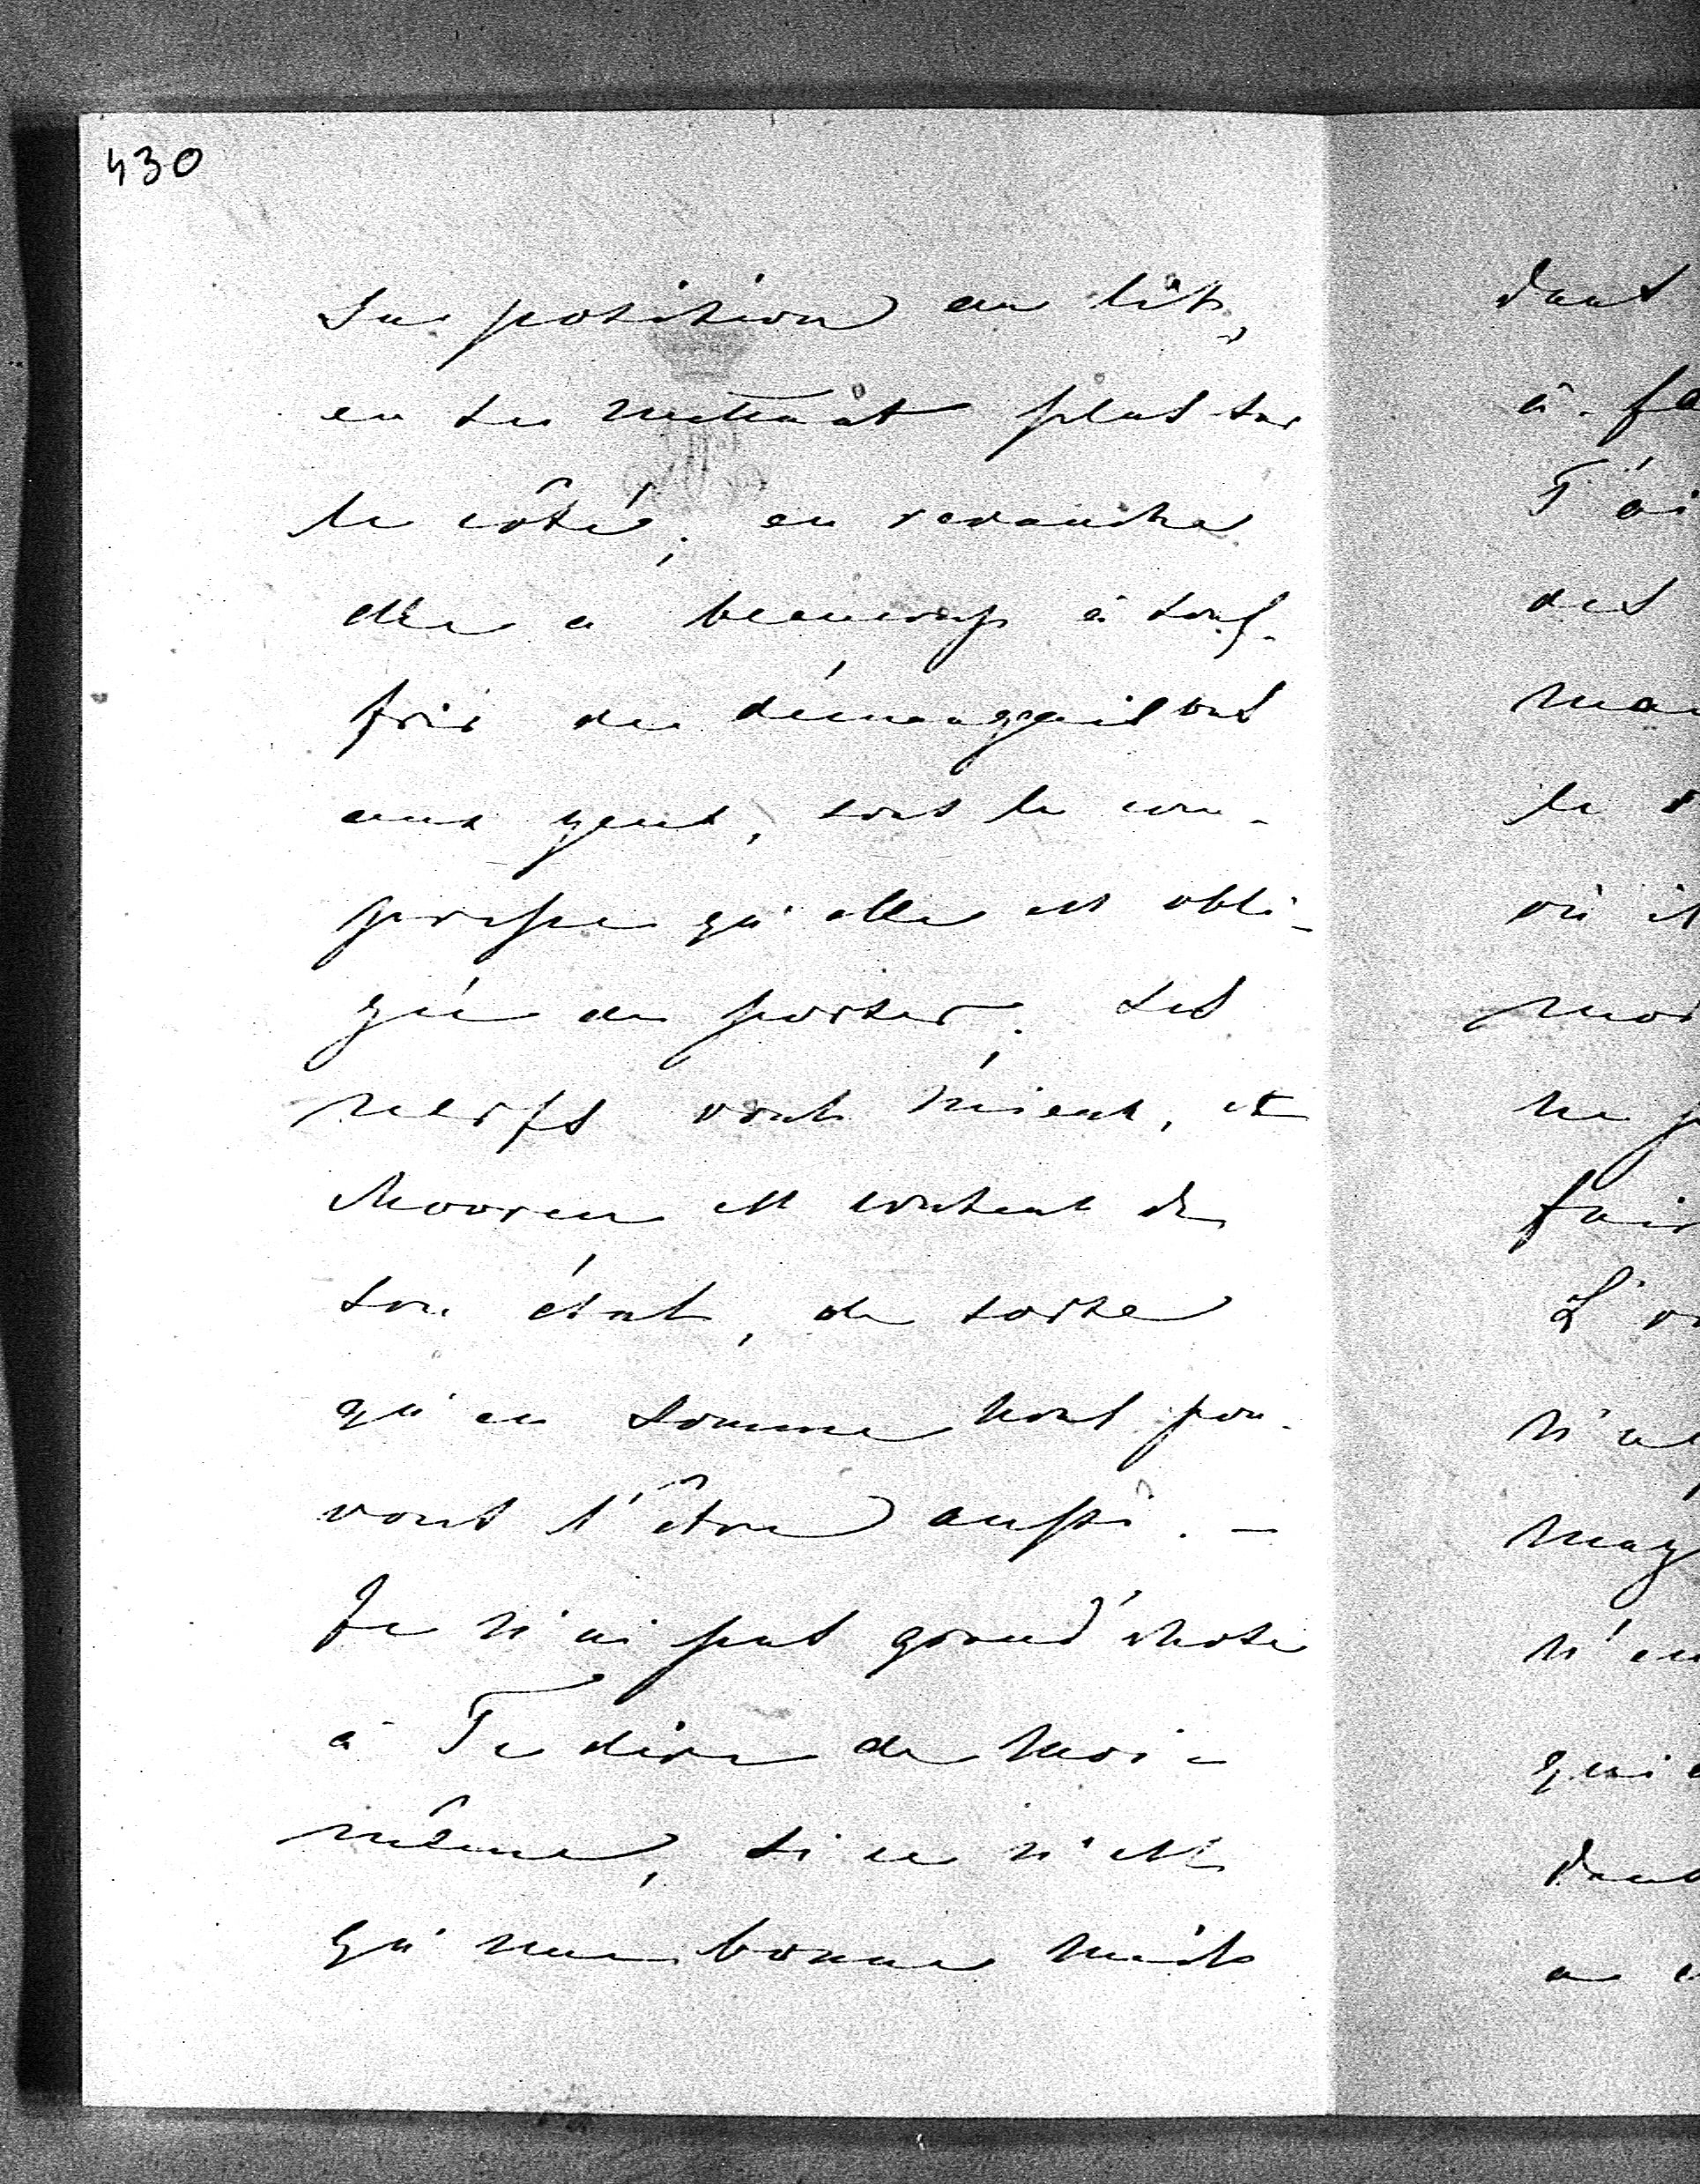 430
sa position au lit,
en se mettant plus sur
le côté; en revanche
elle a beaucoup à souf-
frir de démangeaisons
aux yeux, sous la com-
presse qu'elle est obli-
gée de porter. Ses
nerfs vont mieux, et
Mooren est content de
son état, de sorte
qu'en somme nous pou-
vons l'être aussi. —
Je n'ai pas grand'chose
à Te dire de moi-
même, si ce n'est
qu'une bonne nuit
dans
à fa
T'ai
des
mai
le
où il
moi
ne p
fair
L'
n'a
may
n'en
qui
dans
a